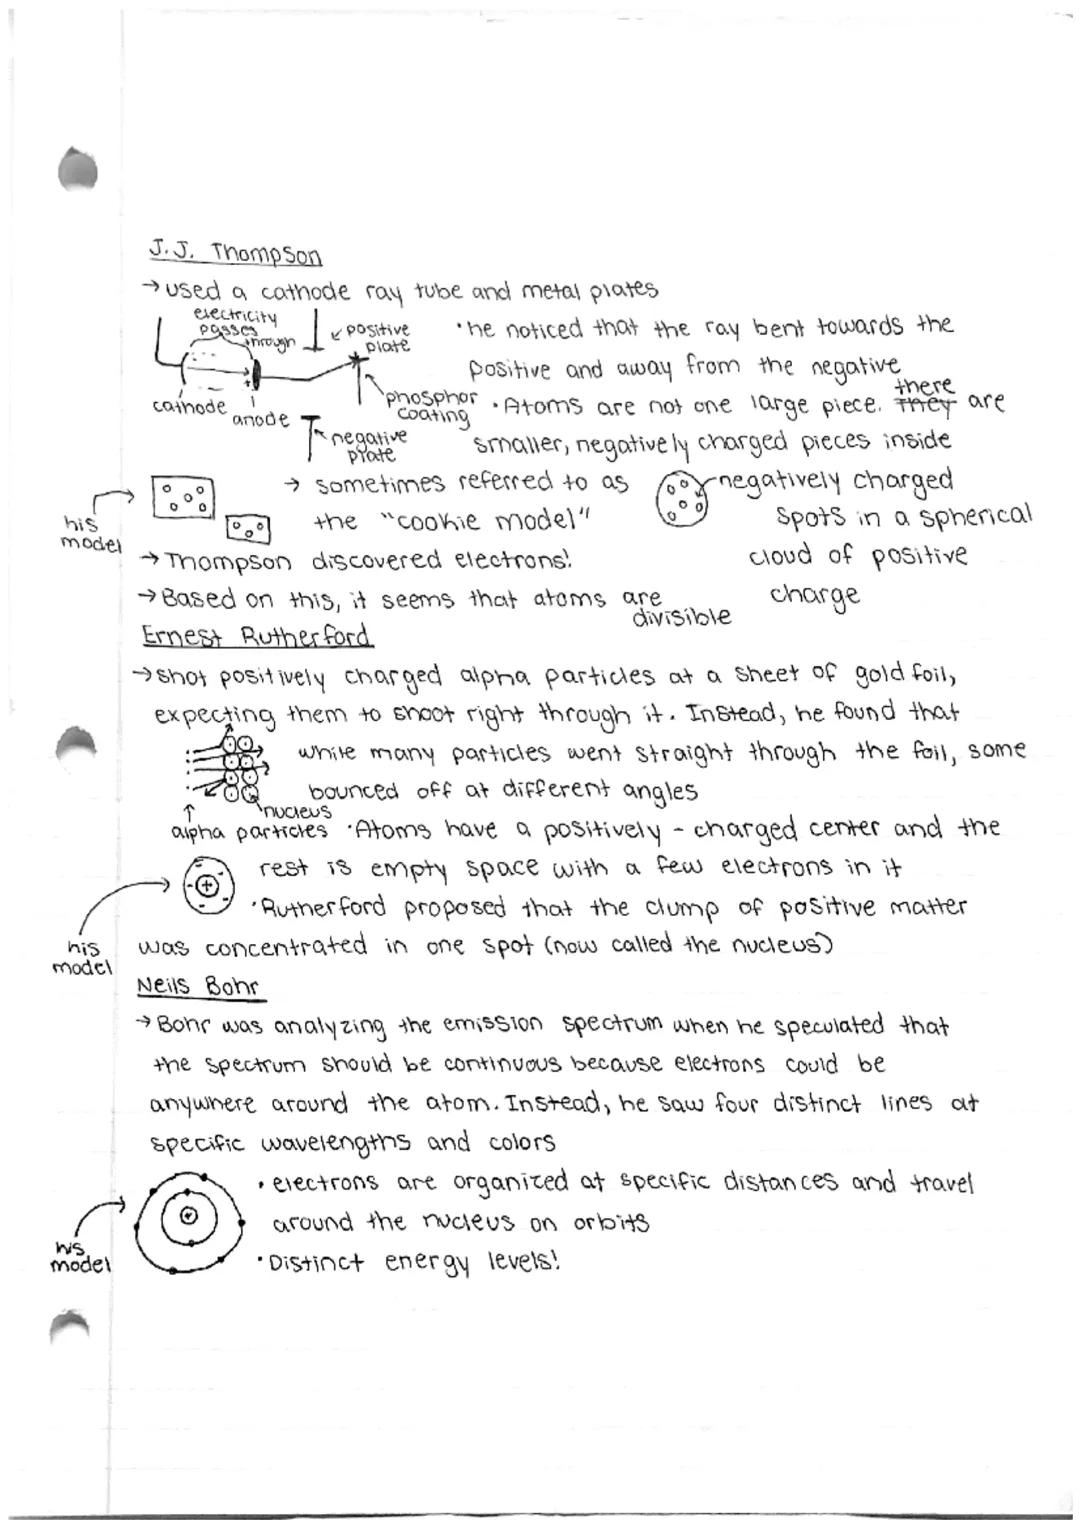 J.J. Thompson
→ used a cathode ray tube and metal plates
electricity
passes
through
positive
plate
cathode
anode
phosphor
coating
negative
plate
• he noticed that the ray bent towards the
positive and away from the negative
• Atoms are not one large piece. They there are
smaller, negatively charged pieces inside
his
model
→ sometimes referred to as
the "cookie model"
negatively charged
spots in a spherical
cloud of positive
charge
→ Thompson discovered electrons!
→ Based on this, it seems that atoms are
divisible
Ernest Rutherford
→ shot positively charged alpha particles at a sheet of gold foil,
expecting them to shoot right through it. Instead, he found that
while many particles went straight through the foil, some
bounced off at different angles
nucleus
alpha particles
• Atoms have a positively - charged center and the
rest is empty space with a few electrons in it
• Rutherford proposed that the clump of positive matter
was concentrated in one spot (now called the nucleus)
his
model
Neils Bohr
→ Bohr was analyzing the emission spectrum when he speculated that
the spectrum should be continuous because electrons could be
anywhere around the atom. Instead, he saw four distinct lines at
specific wavelengths and colors
• electrons are organized at specific distances and travel
around the nucleus on orbits
• Distinct energy levels!
his
model